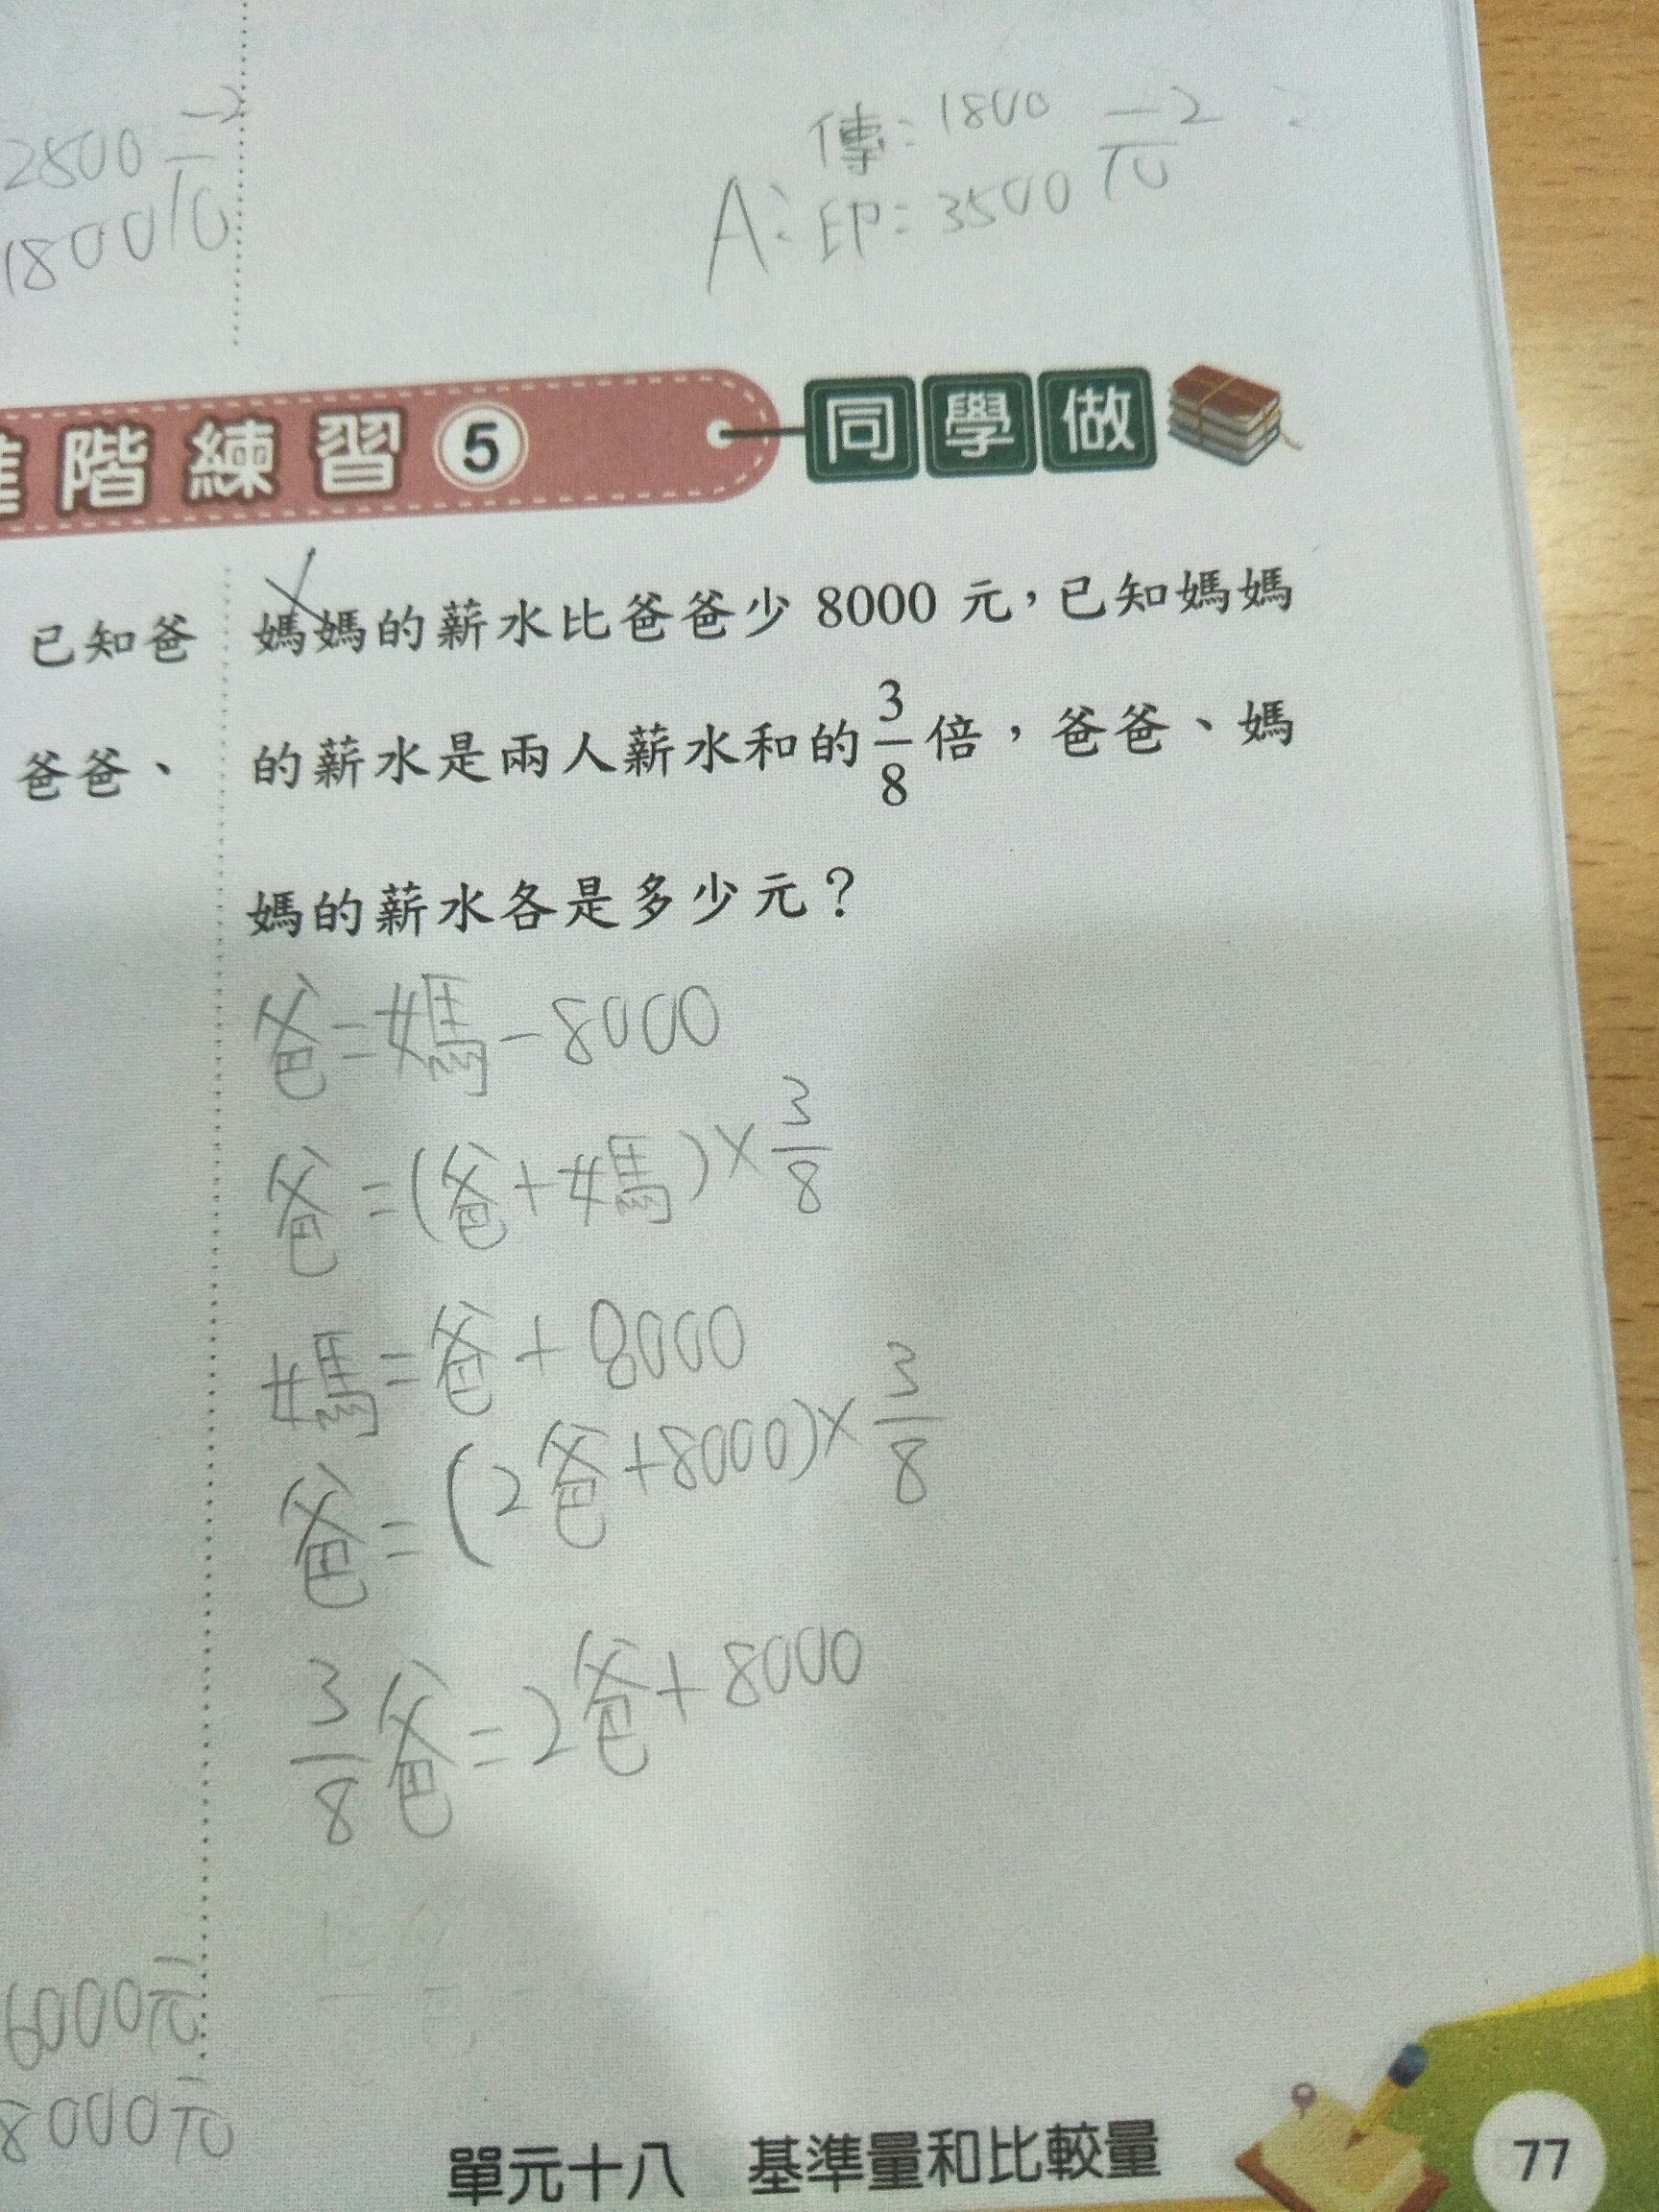 2800元
1800元
傳=1800元
A:印=3500元
階練習5 同學做
已知爸
爸爸、
媽媽的薪水比爸爸少 8000 元，已知媽媽
的薪水是兩人薪水和的3/8倍，爸爸、媽
媽的薪水各是多少元？
爸=媽-8000
爸=(爸+媽)×3/8
媽=爸+8000
爸=(2爸+8000)×3/8
3/8爸=2爸+8000
6000元
8000元
單元十八 基準量和比較量 77